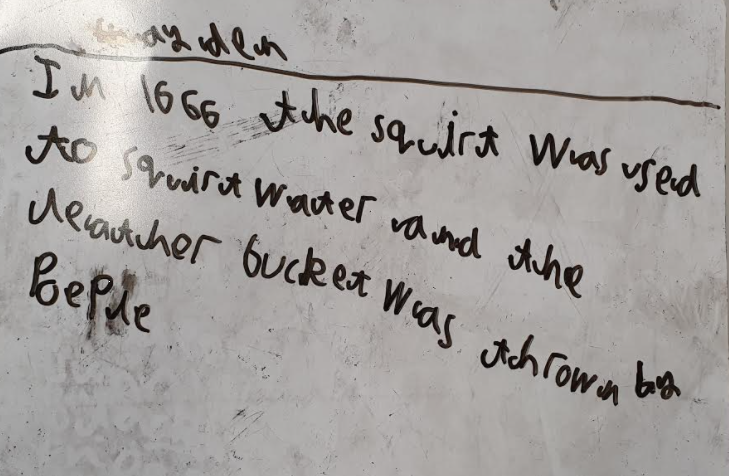 In 1666 the squirt was used
to squirt water and the
leather bucket was thrown by
PeePle